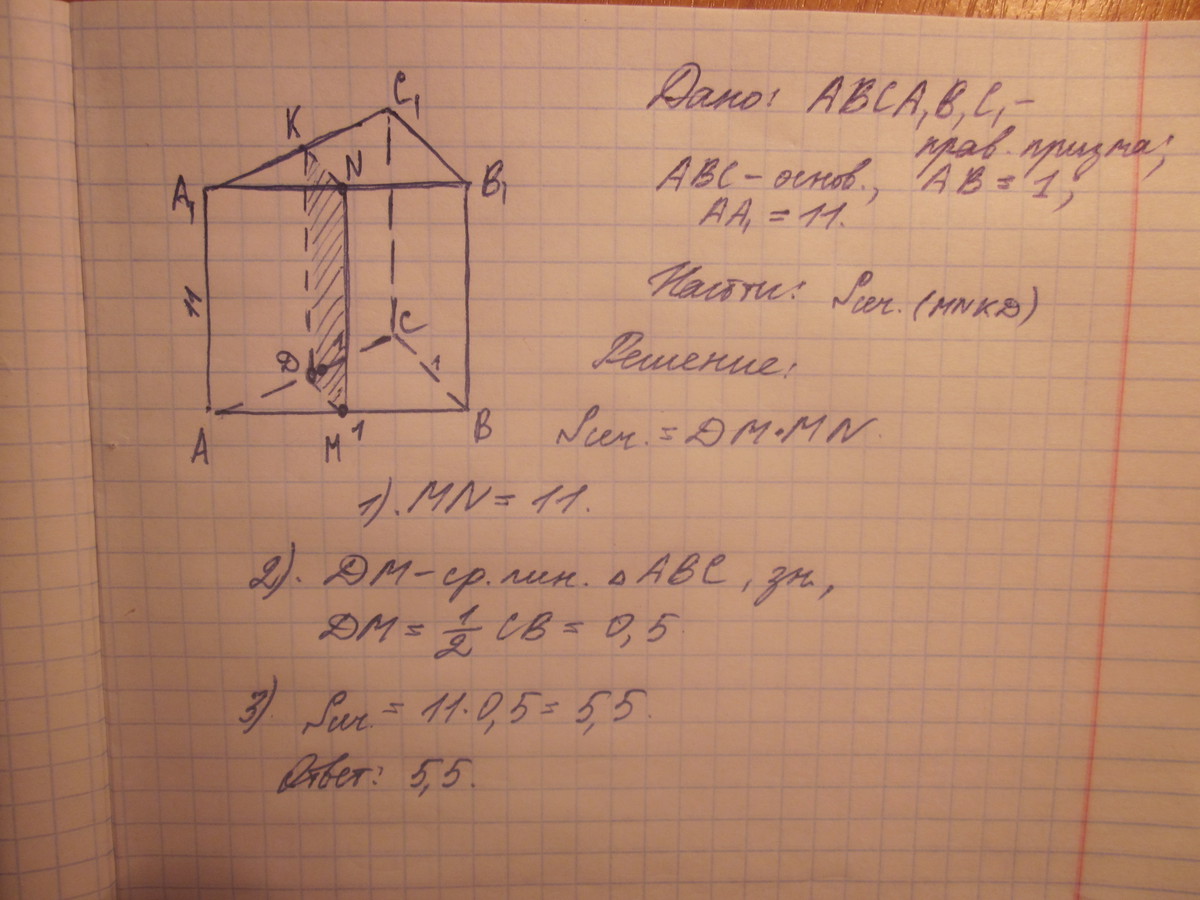 C₁
K
N
A₁
B₁
11
D
1
C
1
A
M
1
B
Дано: ABCA₁B₁C₁ –
прав. призма;
ABC – основ., AB = 1,
AA₁ = 11.
Найти: Sсеч. (MNKD)
Решение:
Sсеч. = DM·MN.
1). MN = 11.
2). DM – ср. лин. △ABC, зн.,
DM = 1/2 CB = 0,5
3) Sсеч. = 11·0,5 = 5,5.
Ответ: 5,5.